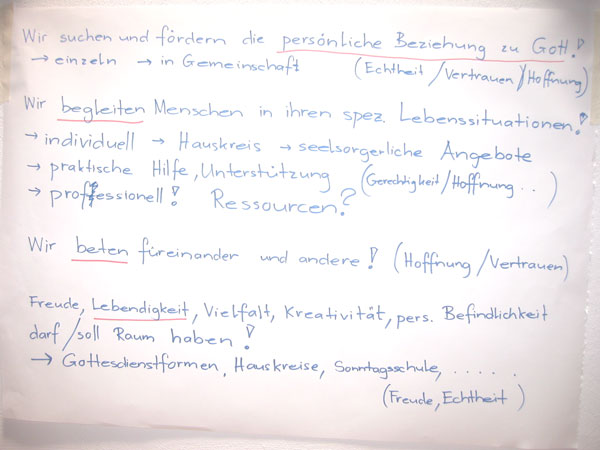 Wir suchen und fördern die persönliche Beziehung zu Gott!
→ einzeln → in Gemeinschaft (Echtheit/Vertrauen/Hoffnung)
Wir begleiten Menschen in ihren spez. Lebenssituationen!
→ individuell → Hauskreis → seelsorgerliche Angebote
→ praktische Hilfe, Unterstützung (Gerechtigkeit/Hoffnung . . )
→ professionell! Ressourcen?
Wir beten füreinander und andere! (Hoffnung/Vertrauen)
Freude, Lebendigkeit, Vielfalt, Kreativität, pers. Befindlichkeit
darf/soll Raum haben!
→ Gottesdienstformen, Hauskreise, Sonntagsschule, . . . . .
(Freude, Echtheit)